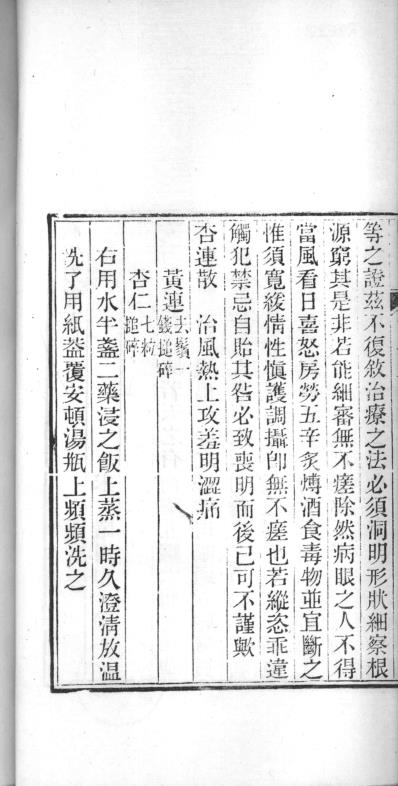 等之證茲不復敘治療之法必須洞明形狀細察根
源窮其是非若能細審無不瘥除然病眼之人不得
當風看日喜怒房勞五辛炙煿酒食毒物並宜斷之
惟須寬緩情性愼護調攝卽無不瘥也若縱恣乖違
觸犯禁忌自貽其咎必致喪明而後已可不謹歟
杏連散 治風熱上攻羞明澀痛
黃連去鬚一錢搥碎
杏仁七粒搥碎
右用水半盞二藥浸之飯上蒸一時久澄清放温
洗了用紙葢覆安頓湯瓶上頻頻洗之